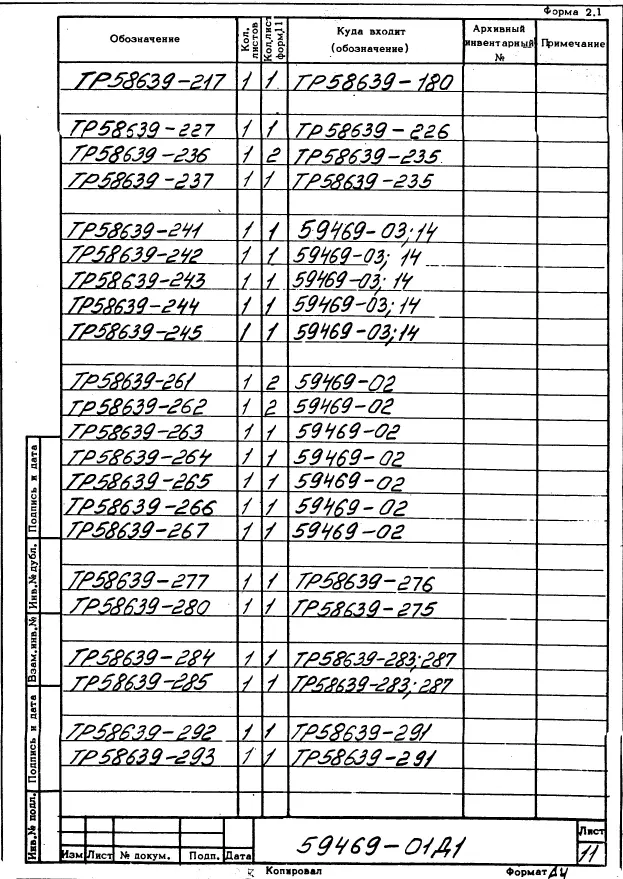 Форма 2.1
Обозначение Кол. листов Кол.лист форм.11 Куда входит (обозначение) Архивный инвентарный № Примечание
ТР58639-217 1 1 ТР58639-180
ТР58639-227 1 1 ТР58639-226
ТР58639-236 1 2 ТР58639-235
ТР58639-237 1 1 ТР58639-235
ТР58639-241 1 1 59469-03; 14
ТР58639-242 1 1 59469-03; 14
ТР58639-243 1 1 59469-03; 14
ТР58639-244 1 1 59469-03; 14
ТР58639-245 1 1 59469-03; 14
ТР58639-261 1 2 59469-02
ТР58639-262 1 2 59469-02
ТР58639-263 1 1 59469-02
ТР58639-264 1 1 59469-02
ТР58639-265 1 1 59469-02
ТР58639-266 1 1 59469-02
ТР58639-267 1 1 59469-02
ТР58639-277 1 1 ТР58639-276
ТР58639-280 1 1 ТР58639-275
ТР58639-284 1 1 ТР58639-283; 287
ТР58639-285 1 1 ТР58639-283; 287
ТР58639-292 1 1 ТР58639-291
ТР58639-293 1 1 ТР58639-291
Подпись и дата
Инв.№ дубл.
Взам.инв.№
Подпись и дата
Инв.№ подл.
Изм Лист № докум. Подп. Дата
59469-01Д1
Лист
11
Копировал Формат А4